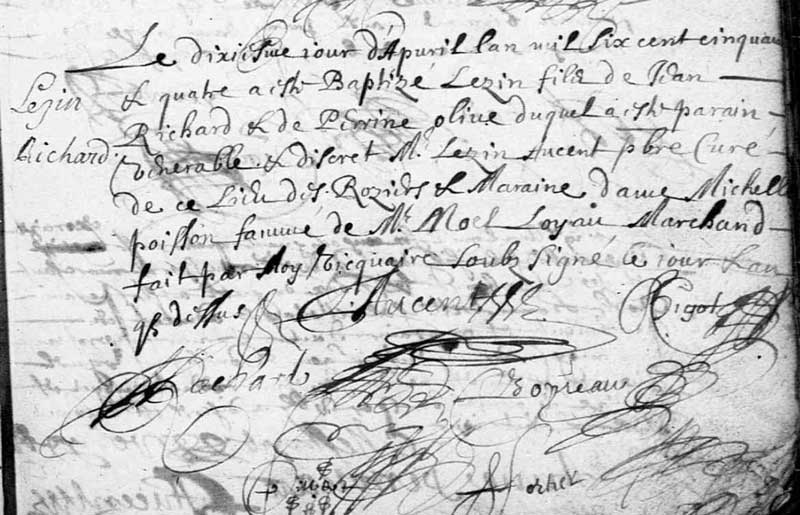 Le dixiesme jour d'Apvril lan mil six cent cinquan
Lezin
& quatre a esté Baptizé Lezin filz de Jean
Richard
Richard & de Perrine olive duquel a esté parain
venerable & discret Mr. Lezin Aucent pbre Curé
de ce Lieu des Roziers & Maraine dame Michelle
poisson famme de Mr. Noel Loyau Marchand
fait par Moy Vicquaire soubs signé le jour & an
q dessus
L Aucent
Rigot
Richard